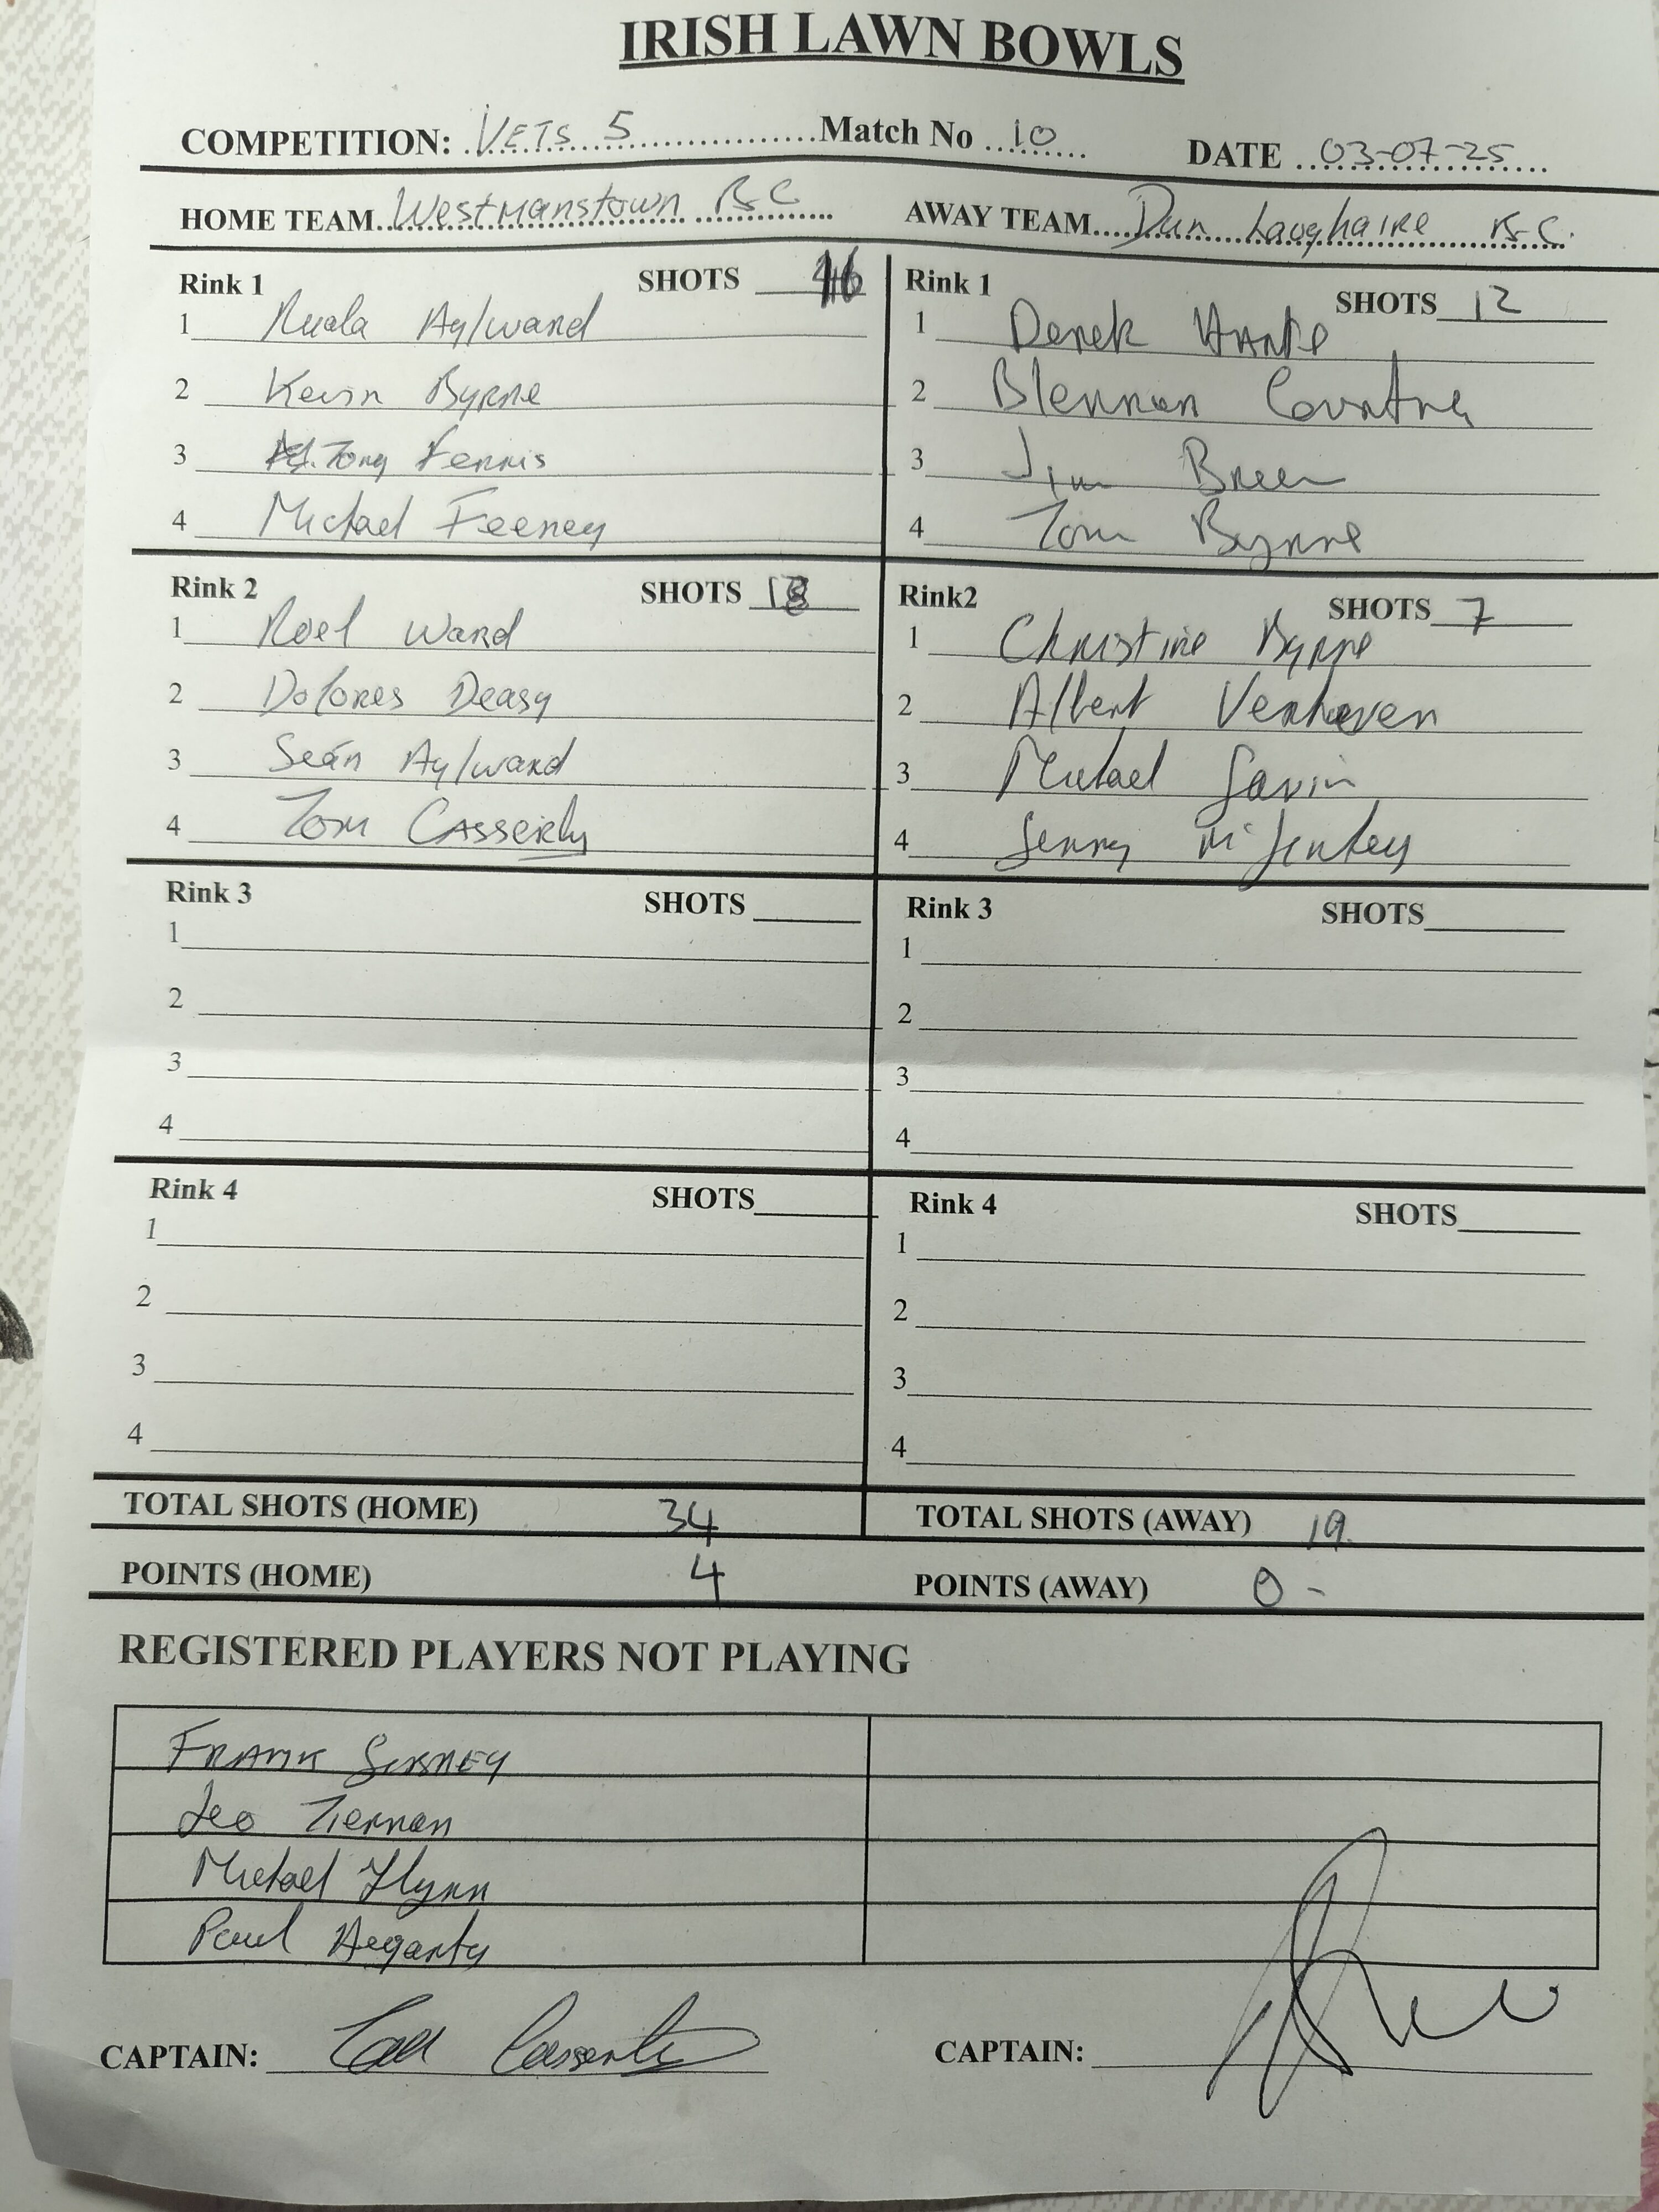 IRISH LAWN BOWLS
COMPETITION: VETS 5 Match No 10 DATE 03-07-25
HOME TEAM Westmanstown B C AWAY TEAM Dun Laoghaire B.C.
Rink 1 SHOTS 16 Rink 1 SHOTS 12
1 Nuala Aylward 1 Derek
2 Kevin Byrne 2
3 Tony Ferris 3 Jim Breen
4 Michael Feeney 4 Tom Byrne
Rink 2 SHOTS 18 Rink2 SHOTS 7
1 Noel Ward 1 Christine Byrne
2 Dolores Deasy 2 Albert Verhoeven
3 Seán Aylward 3 Michael Gavin
4 Tom Casserly 4 Gerry
Rink 3 SHOTS Rink 3 SHOTS
1 1
2 2
3 3
4 4
Rink 4 SHOTS Rink 4 SHOTS
1 1
2 2
3 3
4 4
TOTAL SHOTS (HOME) 34 TOTAL SHOTS (AWAY) 19.
POINTS (HOME) 4 POINTS (AWAY) 0 -
REGISTERED PLAYERS NOT PLAYING
FRANK
Leo Tiernan
Michael Flynn
Paul Hegarty
CAPTAIN: CAPTAIN: